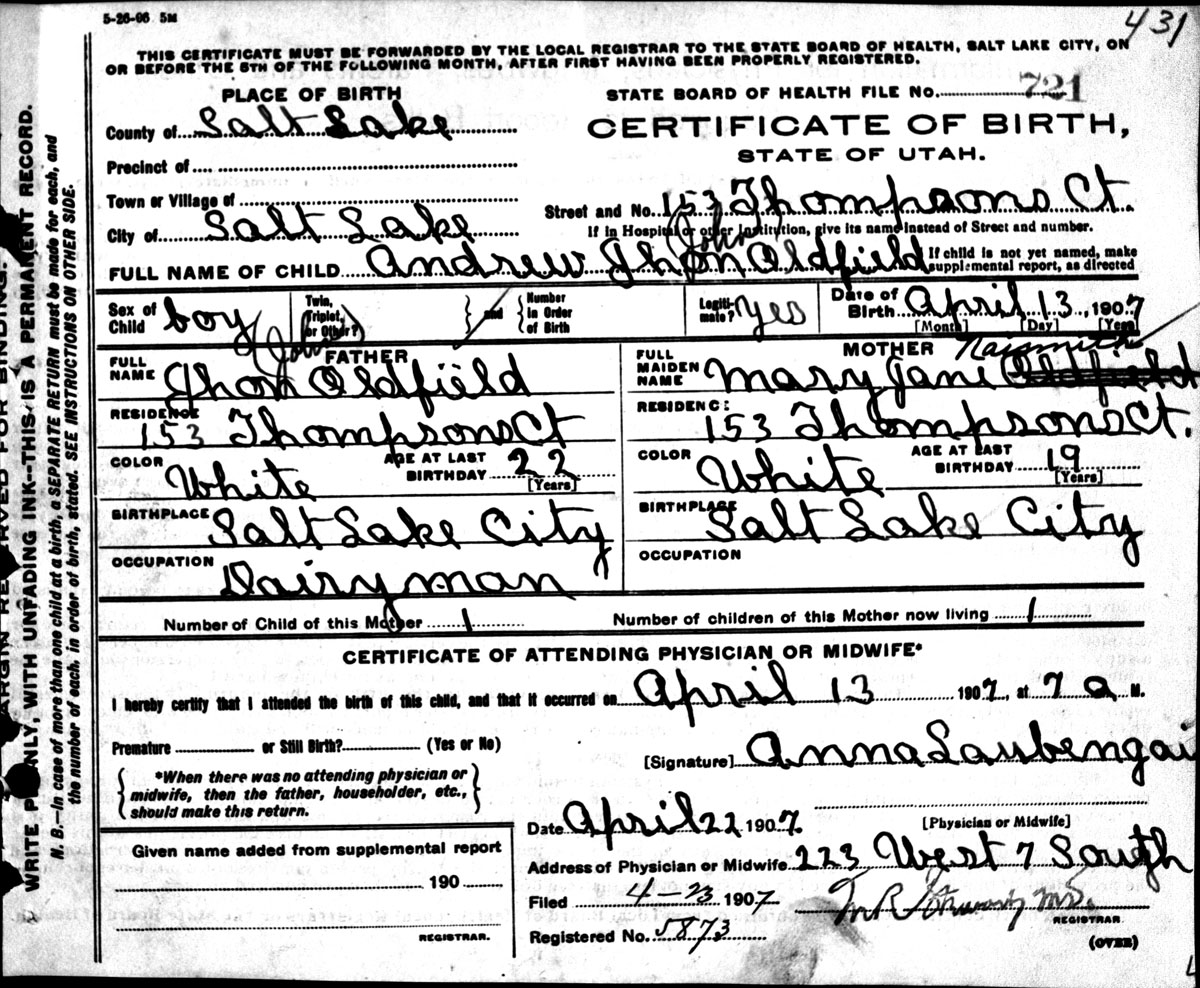 5-26-06 5M
431
THIS CERTIFICATE MUST BE FORWARDED BY THE LOCAL REGISTRAR TO THE STATE BOARD OF HEALTH, SALT LAKE CITY, ON
OR BEFORE THE 5TH OF THE FOLLOWING MONTH, AFTER FIRST HAVING BEEN PROPERLY REGISTERED.
PLACE OF BIRTH
STATE BOARD OF HEALTH FILE No. 721
County of Salt Lake
CERTIFICATE OF BIRTH,
STATE OF UTAH.
Precinct of
Town or Village of
Street and No. 153 Thompsons Ct.
City of Salt Lake
If in Hospital or other Institution, give its name instead of Street and number.
(John)
FULL NAME OF CHILD Andrew Jhon Oldfield
If child is not yet named, make
supplemental report, as directed
Sex of Child boy
Twin, Triplet, or Other?
and
Number in Order of Birth
Legitimate? yes
Date of Birth April 13, 1907
[Month] [Day] [Year]
FATHER
(John)
FULL NAME Jhon Oldfield
RESIDENCE 153 Thompsons Ct
COLOR White
AGE AT LAST BIRTHDAY 22
[Years]
BIRTHPLACE Salt Lake City
OCCUPATION Dairyman
MOTHER
Naysmith
FULL MAIDEN NAME Mary Jane Oldfield
RESIDENCE: 153 Thompsons Ct.
COLOR White
AGE AT LAST BIRTHDAY 19
[Years]
BIRTHPLACE Salt Lake City
OCCUPATION
Number of Child of this Mother 1
Number of children of this Mother now living 1
CERTIFICATE OF ATTENDING PHYSICIAN OR MIDWIFE*
I hereby certify that I attended the birth of this child, and that it occurred on April 13 1907, at 7 a M.
Premature or Still Birth? (Yes or No)
[Signature] Anna Laubengai
*When there was no attending physician or
midwife, then the father, householder, etc.,
should make this return.
[Physician or Midwife]
Date April 22 1907
Given name added from supplemental report
190
REGISTRAR.
Address of Physician or Midwife 223 West 7 South
Filed 4-23 1907
REGISTRAR
Registered No. 5873
(OVER)
MARGIN RESERVED FOR BINDING.
WRITE PLAINLY, WITH UNFADING INK--THIS IS A PERMANENT RECORD.
N. B.—In case of more than one child at a birth, a SEPARATE RETURN must be made for each, and
the number of each, in order of birth, stated. SEE INSTRUCTIONS ON OTHER SIDE.